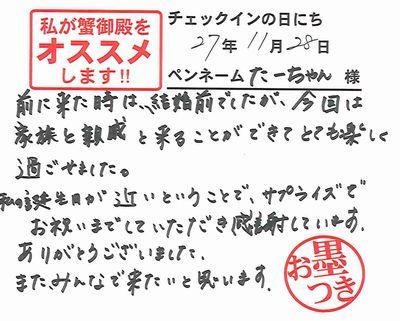 私が蟹御殿を
オススメ
します!!
チェックインの日にち
27年 11月 28日
ペンネーム たーちゃん 様
前に来た時は、結婚前でしたが、今回は
家族と親戚と来ることができてとても楽しく
過ごせました。
私の誕生日が近いということで、サプライズで
お祝いまでしていただき感謝しています。
ありがとうございました。
またみんなで来たいと思います。
お墨つき